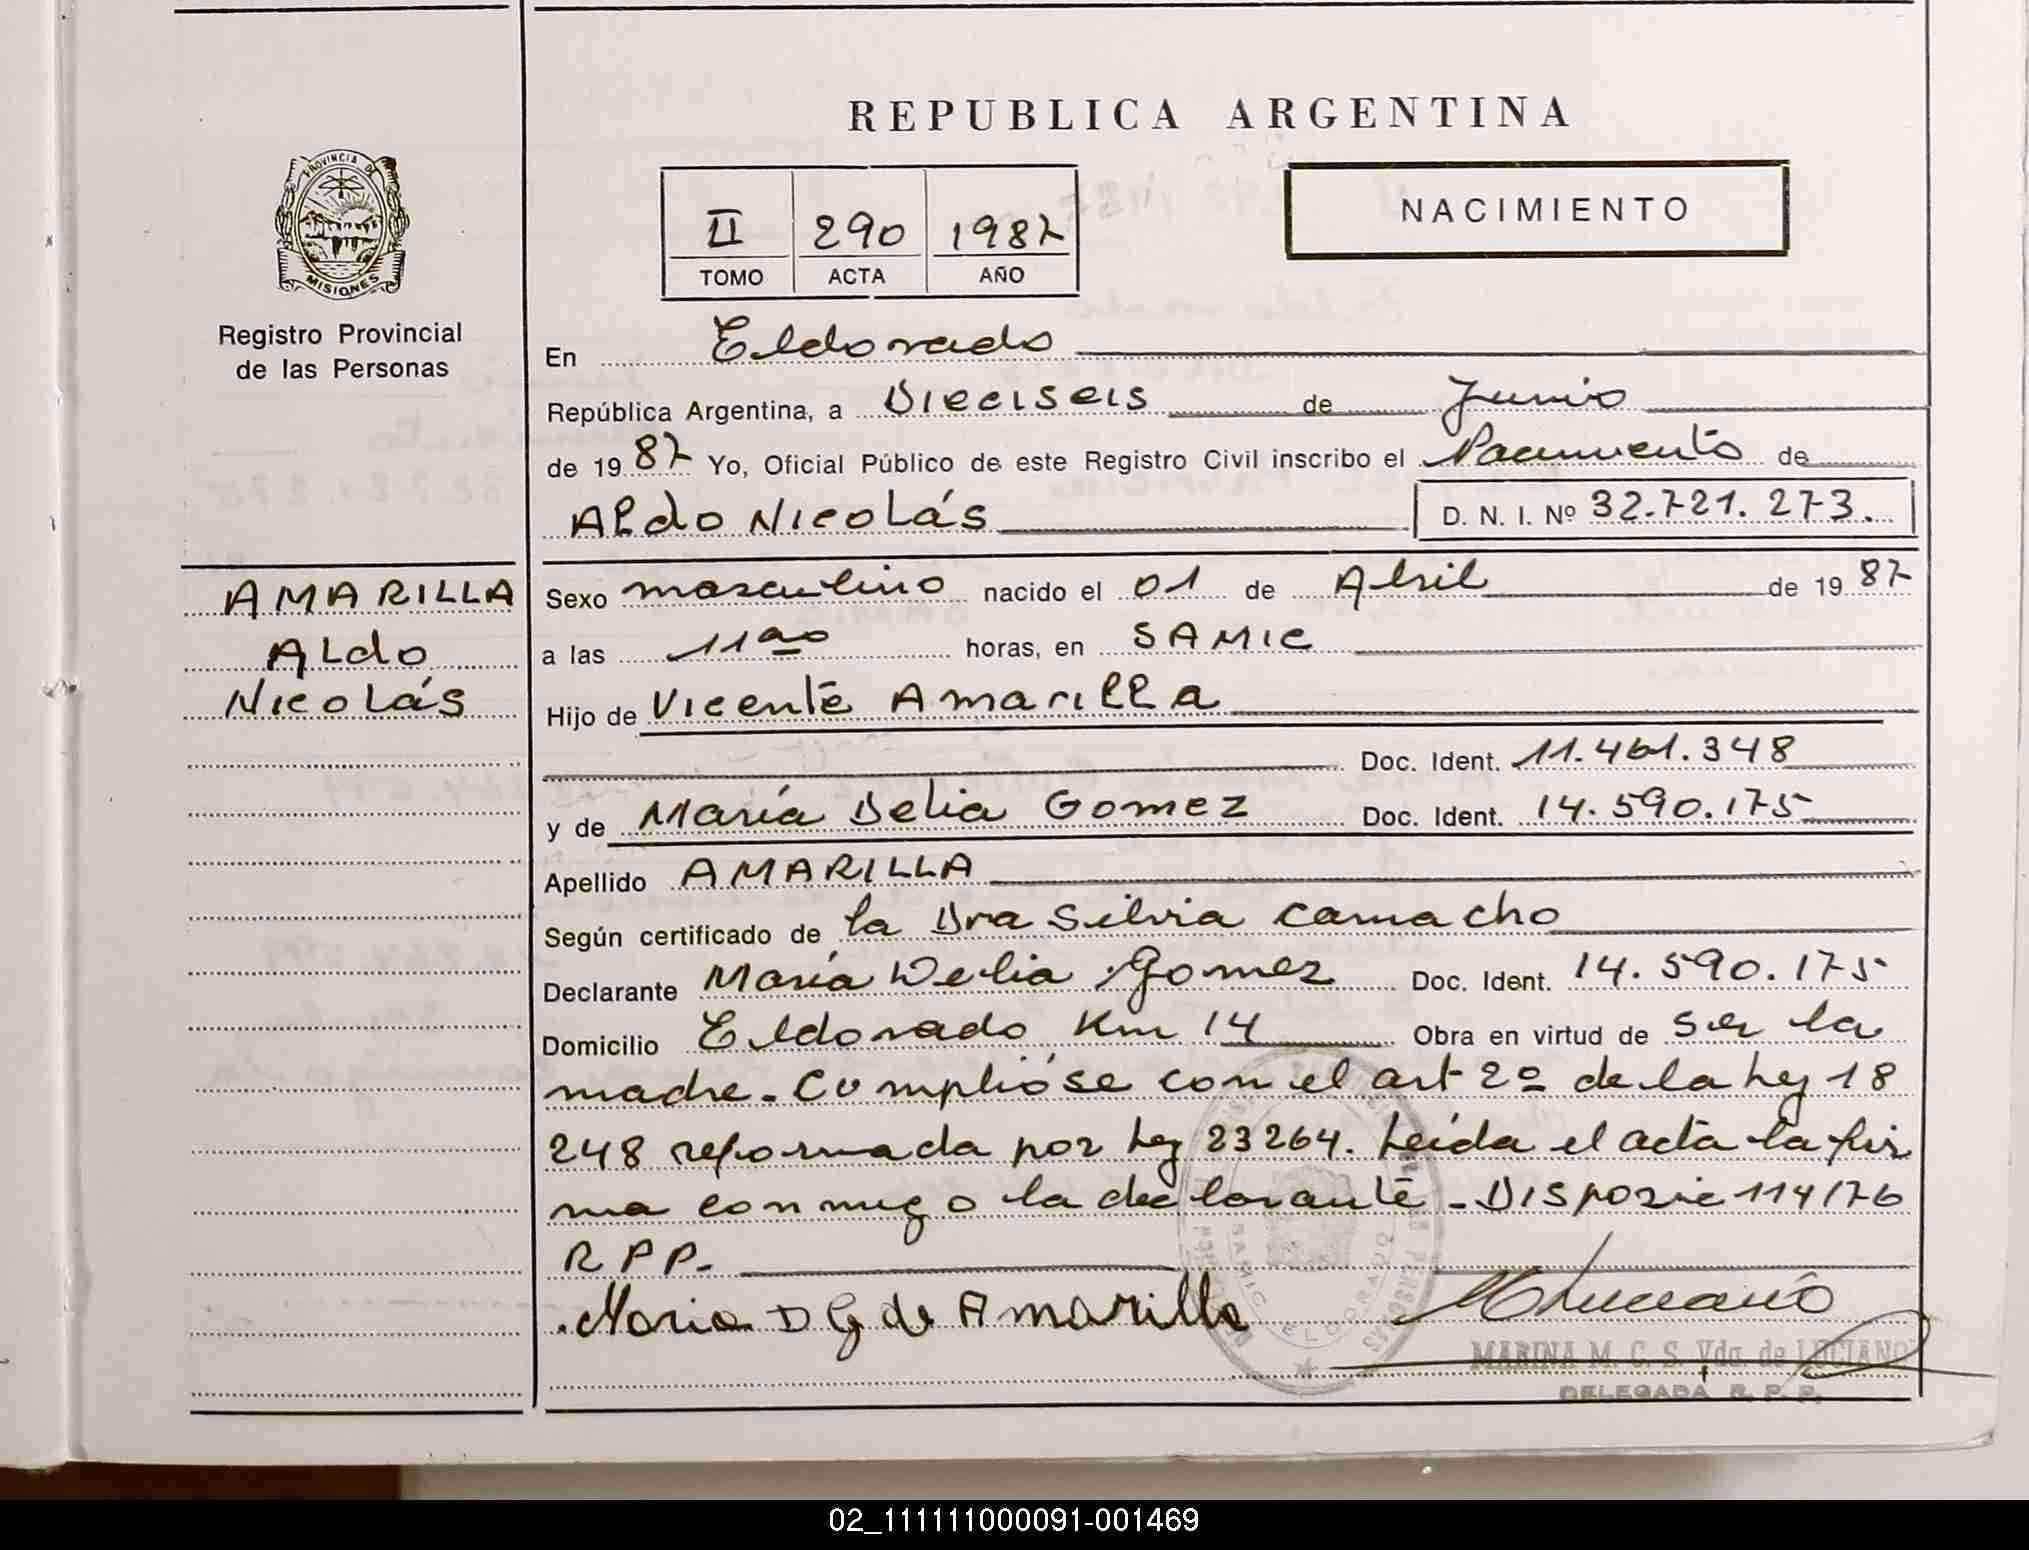 REPUBLICA ARGENTINA
PROVINCIA DE
MISIONES
Registro Provincial
de las Personas
II 290 1987
TOMO ACTA AÑO
NACIMIENTO
En Eldorado
República Argentina, a Dieciseis de Junio
de 1987 Yo, Oficial Público de este Registro Civil inscribo el Nacimiento de
Aldo Nicolás D. N. I. Nº 32.721.273.
AMARILLA
Aldo
Nicolás
Sexo masculino nacido el 01 de Abril de 1987
a las 11 horas, en SAMIC
Hijo de Vicente Amarilla
Doc. Ident. 11.461.348
y de María Delia Gomez Doc. Ident. 14.590.175
Apellido AMARILLA
Según certificado de la Dra Silvia Camacho
Declarante María Delia Gomez Doc. Ident. 14.590.175
Domicilio Eldorado Km 14 Obra en virtud de ser la
madre. Cumplióse con el art 2º de la Ley 18
248 reformada por Ley 23264. Leída el acta la fir
ma conmigo la declarante - Disposic 114/76
R P P.
Maria D G de Amarilla
SAMIC ELDORADO
MARINA M. C. S. Vda. de LUCIANO
DELEGADA R. P. P.
02_111111000091-001469